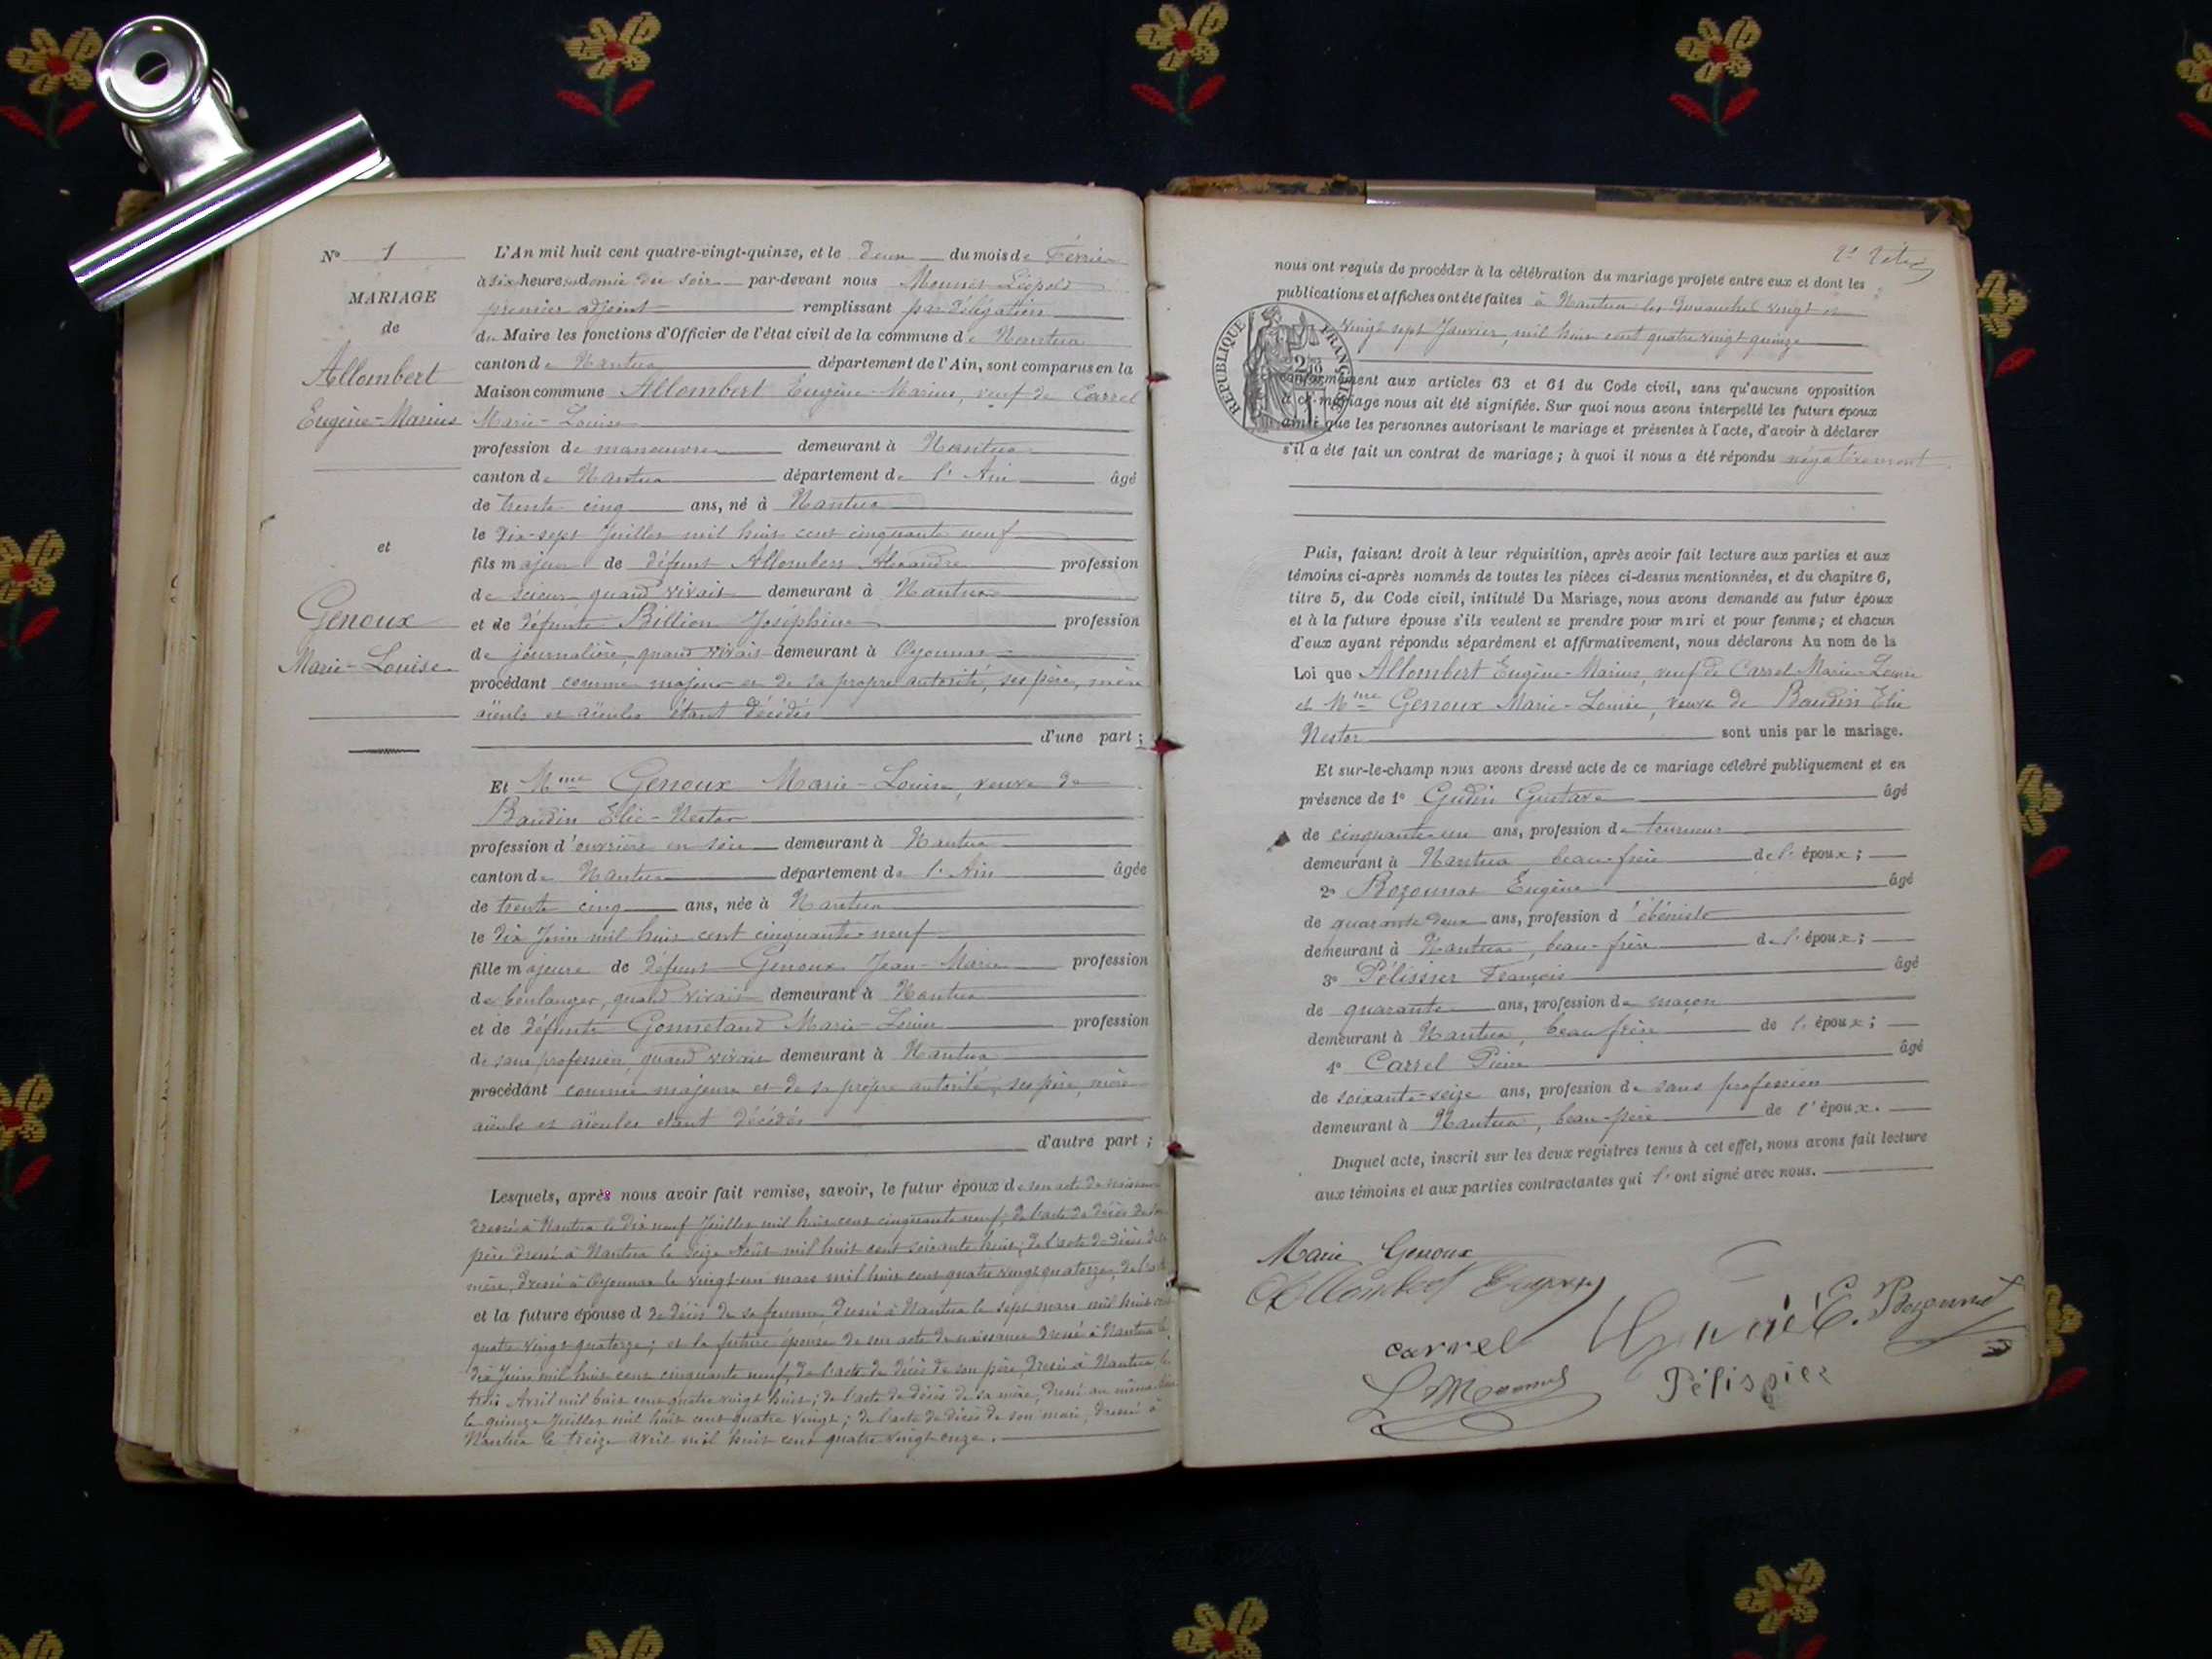 N° 1
MARIAGE
de
Allombert
Eugène-Marius
et
Genoux
Marie-Louise
L'An mil huit cent quatre-vingt-quinze, et le deux du mois de Février
à six heures et demie du soir par-devant nous Mounet Léopold
premier adjoint remplissant par délégation
du Maire les fonctions d'Officier de l'état civil de la commune de Nantua
canton de Nantua département de l'Ain, sont comparus en la
Maison commune Allombert Eugène-Marius, veuf de Carrel
Marie-Louise
profession de manœuvre demeurant à Nantua
canton de Nantua département de l'Ain âgé
de trente cinq ans, né à Nantua
le dix-sept Juillet mil huit cent cinquante neuf
fils majeur de défunt Allombert Alexandre profession
de scieur quand vivait demeurant à Nantua
et de défunte Billion Joséphine profession
de journalière, quand vivait demeurant à Oyonnax
procédant comme majeur et de sa propre autorité, ses père, mère
aïeuls et aïeules étant décédés
d'une part ;
Et Mme Genoux Marie-Louise, veuve de
Baudin Elie-Nestor
profession d'ouvrière en soie demeurant à Nantua
canton de Nantua département de l'Ain âgée
de trente cinq ans, née à Nantua
le dix Juin mil huit cent cinquante neuf
fille majeure de défunt Genoux Jean-Marie profession
de boulanger, quand vivait demeurant à Nantua
et de défunte Gonnetand Marie-Louise profession
de sans profession, quand vivait demeurant à Nantua
procédant comme majeure et de sa propre autorité, ses père, mère
aïeuls et aïeules étant décédés
d'autre part ;
Lesquels, après nous avoir fait remise, savoir, le futur époux de son acte de naissance
dressé à Nantua le dix neuf Juillet mil huit cent cinquante neuf; de l'acte de décès de son
père dressé à Nantua le seize Août mil huit cent soixante huit; de l'acte de décès de sa
mère, dressé à Oyonnax le vingt-un mars mil huit cent quatre vingt quatorze; de l'acte
et la future épouse d de décès de sa femme, dressé à Nantua le sept mars mil huit cent
quatre vingt-quatorze; et la future épouse de son acte de naissance dressé à Nantua le
dix Juin mil huit cent cinquante neuf; de l'acte de décès de son père, dressé à Nantua le
trois Avril mil huit cent quatre vingt huit; de l'acte de décès de sa mère, dressé au même lieu
le quinze Juillet mil huit cent quatre vingt; de l'acte de décès de son mari, dressé à
Nantua le treize avril mil huit cent quatre vingt onze.
nous ont requis de procéder à la célébration du mariage projeté entre eux et dont les
publications et affiches ont été faites à Nantua les Dimanches vingt et
vingt sept Janvier, mil huit cent quatre vingt quinze
RÉPUBLIQUE FRANÇAISE
conformément aux articles 63 et 64 du Code civil, sans qu'aucune opposition
à ce mariage nous ait été signifiée. Sur quoi nous avons interpellé les futurs époux
ainsi que les personnes autorisant le mariage et présentes à l'acte, d'avoir à déclarer
s'il a été fait un contrat de mariage ; à quoi il nous a été répondu négativement
Puis, faisant droit à leur réquisition, après avoir fait lecture aux parties et aux
témoins ci-après nommés de toutes les pièces ci-dessus mentionnées, et du chapitre 6,
titre 5, du Code civil, intitulé Du Mariage, nous avons demandé au futur époux
et à la future épouse s'ils veulent se prendre pour mari et pour femme ; et chacun
d'eux ayant répondu séparément et affirmativement, nous déclarons Au nom de la
Loi que Allombert Eugène-Marius, veuf de Carrel Marie-Louise
et Mme Genoux Marie-Louise, veuve de Baudin Elie
Nestor sont unis par le mariage.
Et sur-le-champ nous avons dressé acte de ce mariage célébré publiquement et en
présence de 1° Gudin Gustave âgé
de cinquante-un ans, profession de tourneur
demeurant à Nantua beau-frère de l'époux ;
2° Bozonnat Eugène âgé
de quarante deux ans, profession d'ébéniste
demeurant à Nantua, beau-frère de l'époux ;
3° Pélissier François âgé
de quarante ans, profession de maçon
demeurant à Nantua, beau frère de l'époux ;
4° Carrel Pierre âgé
de soixante-seize ans, profession de sans profession
demeurant à Nantua, beau-père de l'époux.
Duquel acte, inscrit sur les deux registres tenus à cet effet, nous avons fait lecture
aux témoins et aux parties contractantes qui l'ont signé avec nous.
Marie Genoux
Allombert Eugène
carrel
Pélissier